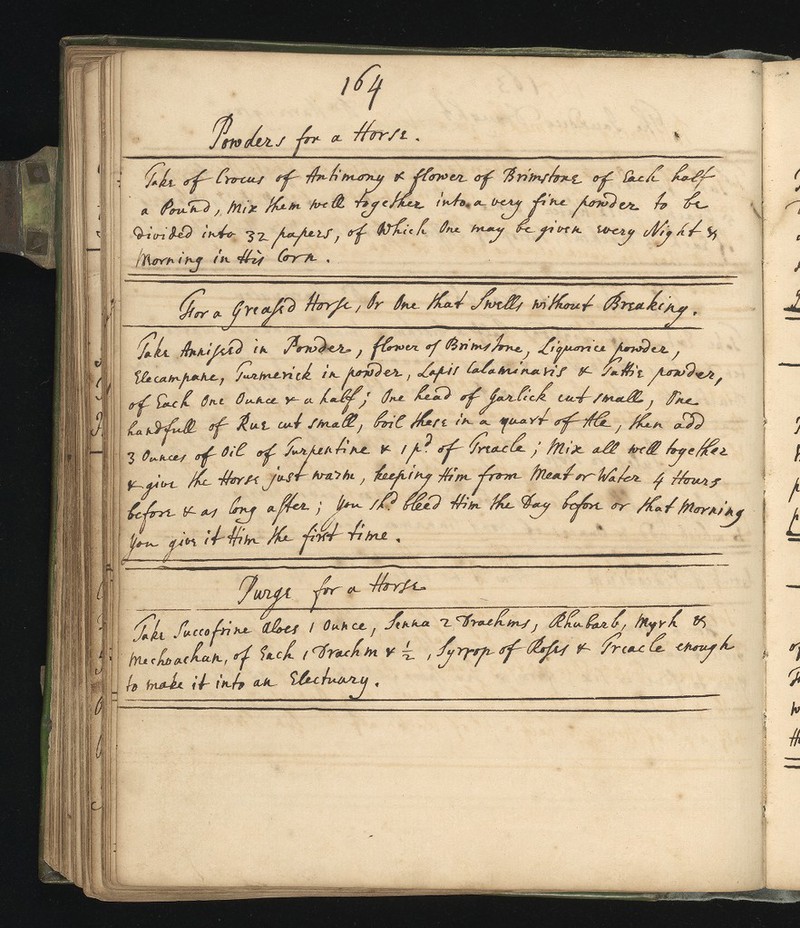 164
Powders for a Horse.
Take of Crocus of Antimony & flower of Brimstone of Each half
a Pound, Mix them well together into a very fine powder to be
divided into 32 papers, of Which One may be given every Night &
Morning in His Corn.
For a Greased Horse, Or One that Swells without Breaking.
Take Anniseed in Powder, flower of Brimstone, Liquorice powder,
Elecampane, Turmerick in powder, Lapis Calaminaris & Tuttie powder,
of Each One Ounce & a half; One head of Garlick cut small, One
handfull of Rue cut small, boil these in a quart of Ale, then add
3 Ounces of Oil of Turpentine & 1 pd of Treacle; Mix all well together
& give the Horse just warm, keeping Him from Meat or Water 4 Hours
before & as long after; you shd bleed Him the Day before or that Morning
you give it Him the first time.
Purge for a Horse
Take Succotrine Aloes 1 Ounce, Senna 2 Drachms, Rhubarb, Myrh &
Mechoachan, of Each 1 Drachm & ½, Syrrop of Roses & Treacle enough
to make it into an Electuary.